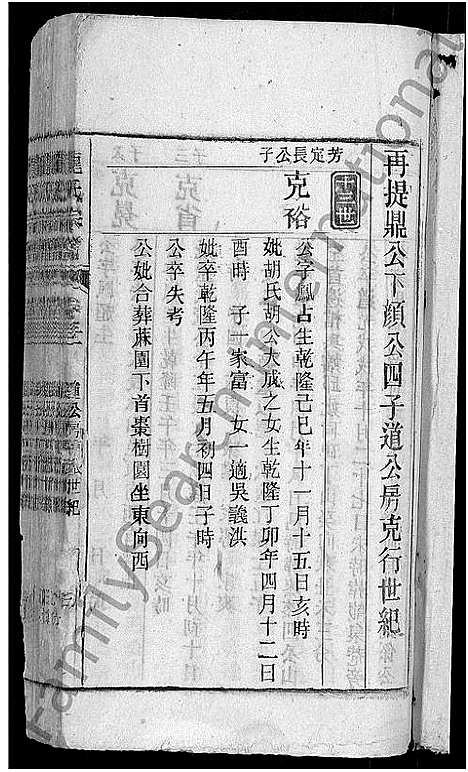 再提鼎公下顏公四子道公房克行世紀
十三世
芳定長公子
克裕
公字鳳占生乾隆己巳年十一月十五日亥時
妣胡氏胡公大成之女生乾隆丁卯年四月十二日
酉時　子一家富　女一適吳義洪
妣卒乾隆丙午年五月初四日子時
公卒失考
公妣合葬蔴園下首棗樹園坐東向西
FamilySearch International